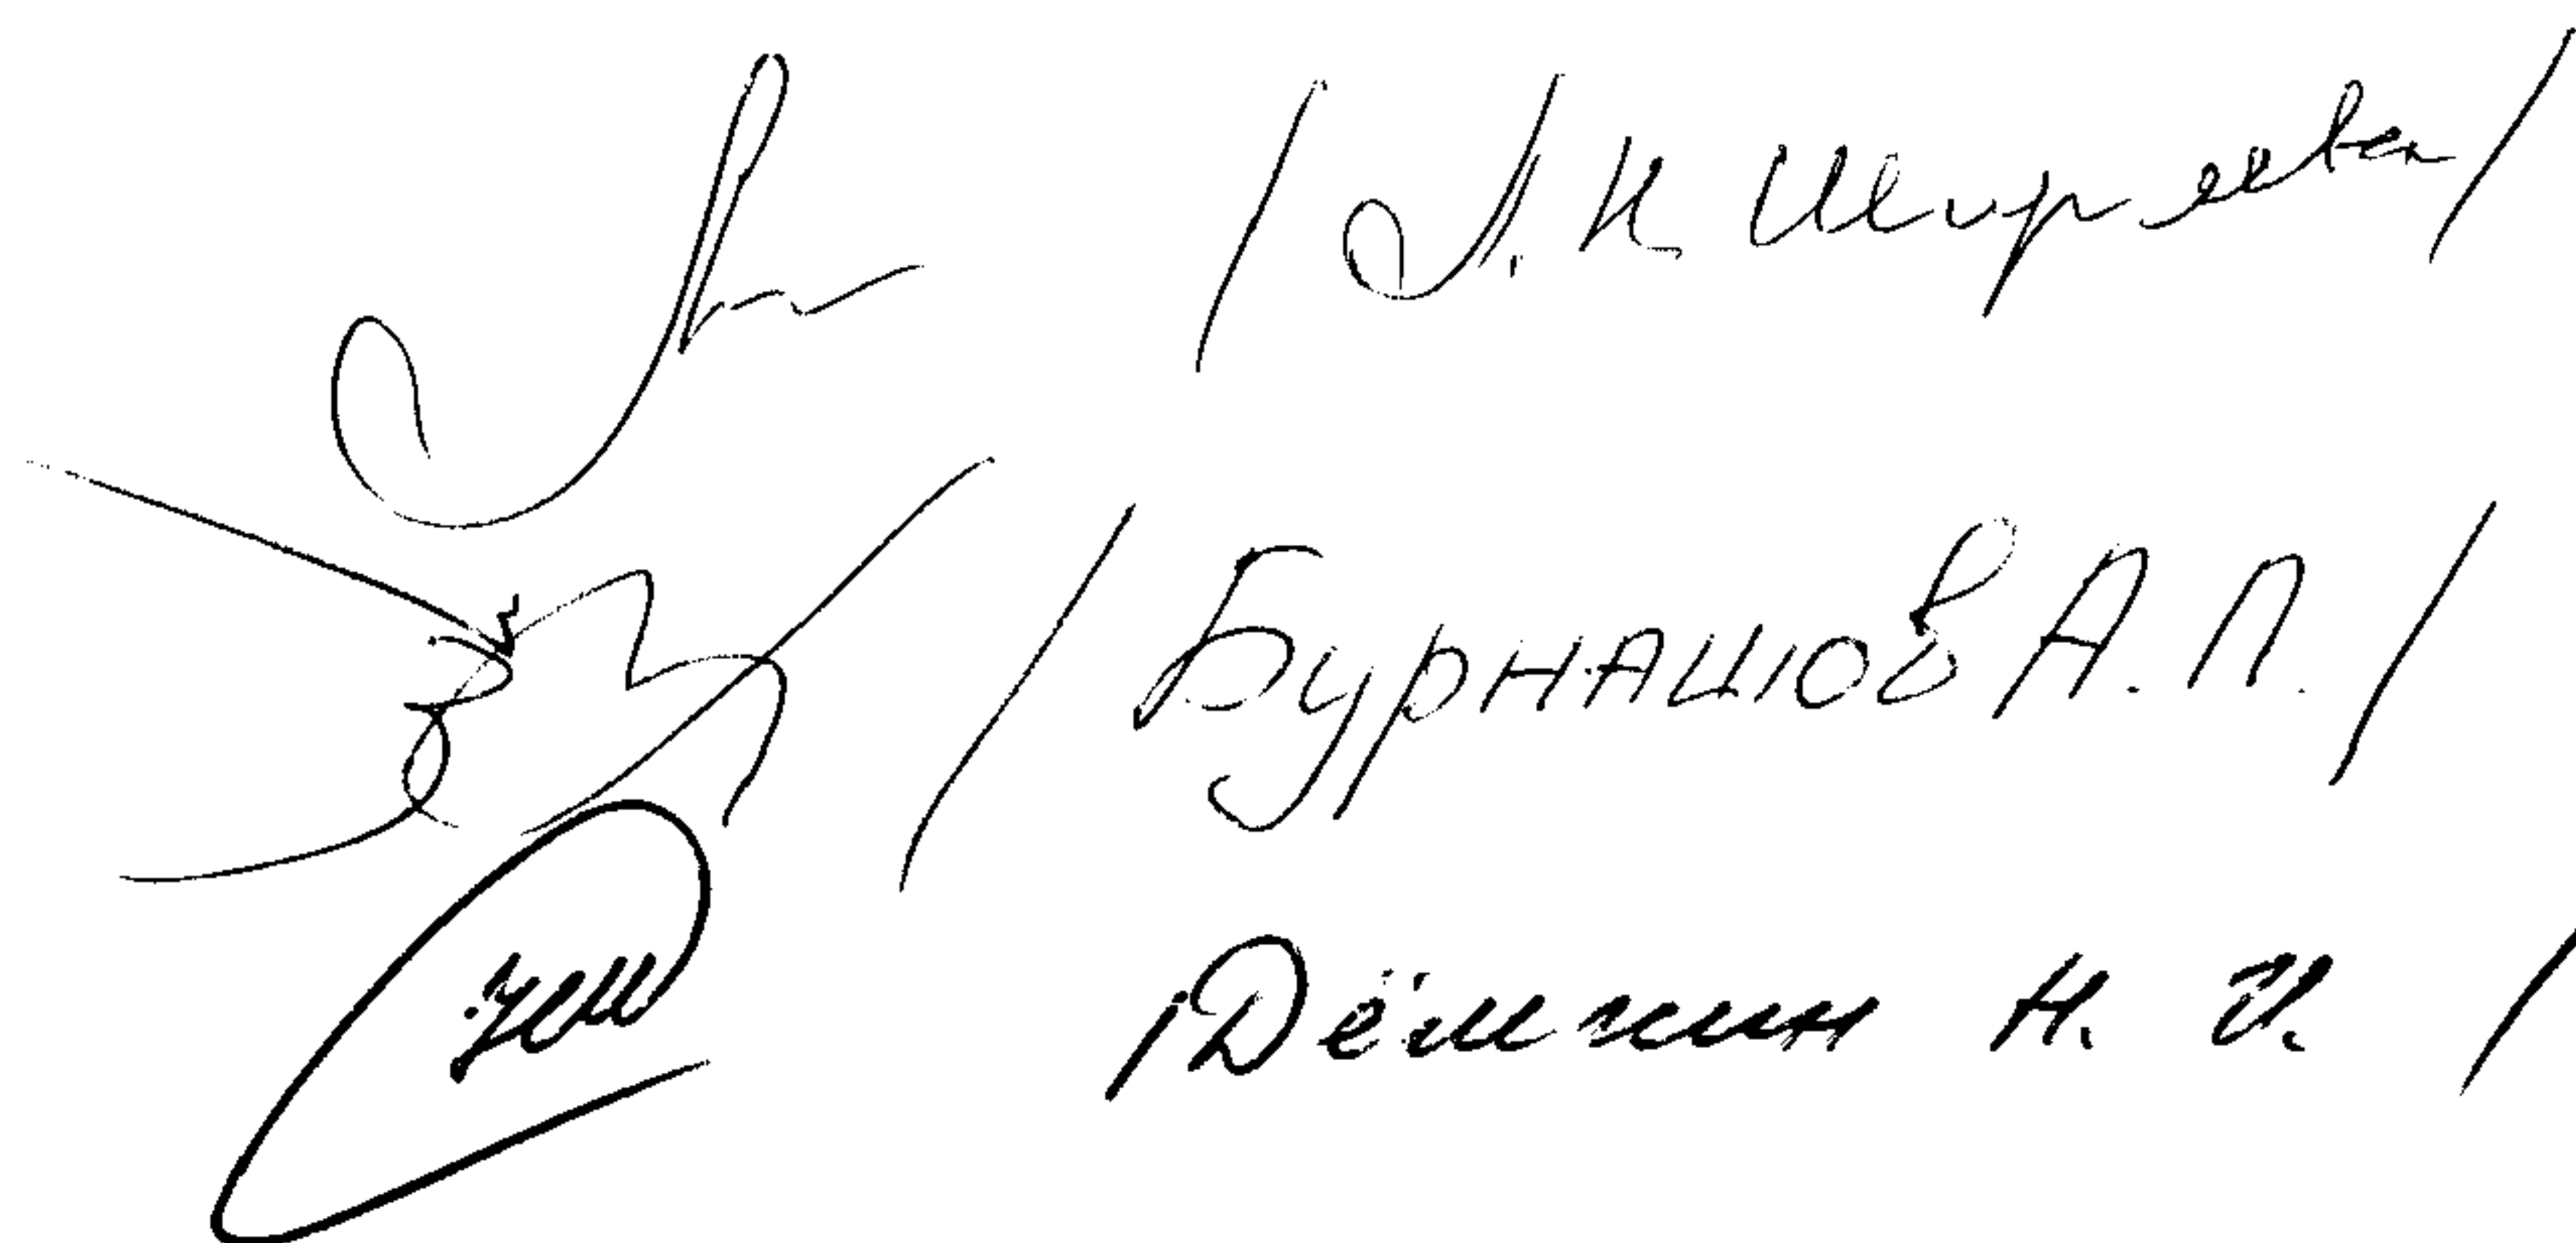 / Л. И Ширяева /
/ Бурнашов А. П. /
/ Дёмкин Н. И. /